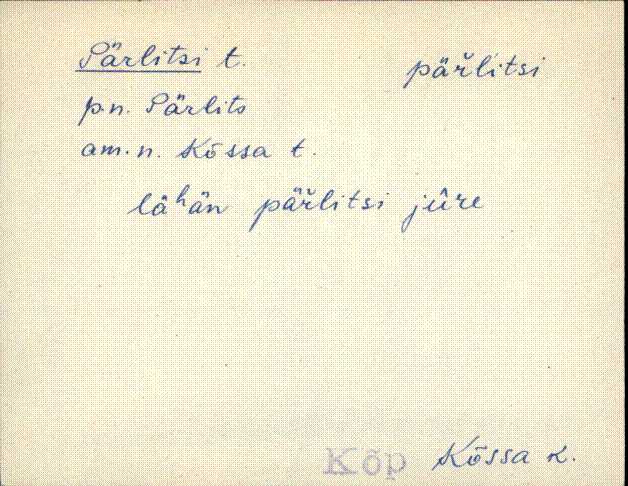 Pärlitsi t. pär̆litsi
p.n. Pärlits
am.n. Kõssa t.
lä̂ʰän pär̆litsi jûre
Kõp Kõssa k.